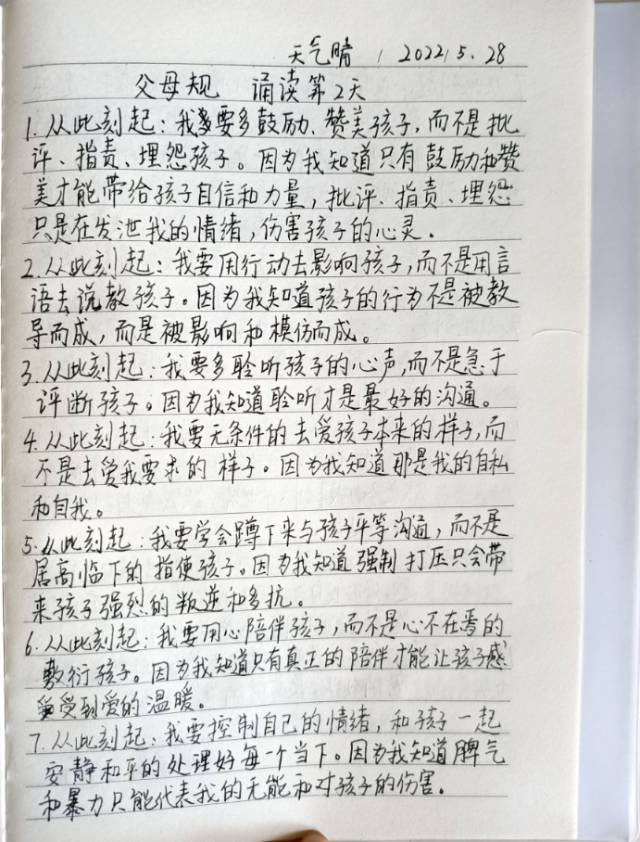 天气晴 2022.5.28
父母规 诵读第2天
1.从此刻起:我要多鼓励、赞美孩子,而不是批
评、指责、埋怨孩子。因为我知道只有鼓励和赞
美才能带给孩子自信和力量,批评、指责、埋怨
只是在发泄我的情绪,伤害孩子的心灵。
2.从此刻起:我要用行动去影响孩子,而不是用言
语去说教孩子。因为我知道孩子的行为不是被教
导而成,而是被影响和模仿而成。
3.从此刻起:我要多聆听孩子的心声,而不是急于
评断孩子。因为我知道聆听才是最好的沟通。
4.从此刻起:我要无条件的去爱孩子本来的样子,而
不是去爱我要求的样子。因为我知道那是我的自私
和自我。
5.从此刻起:我要学会蹲下来与孩子平等沟通,而不是
居高临下的指使孩子。因为我知道强制打压只会带
来孩子强烈的叛逆和多抗。
6.从此刻起:我要用心陪伴孩子,而不是心不在焉的
敷衍孩子。因为我知道只有真正的陪伴才能让孩子感
受到爱的温暖。
7.从此刻起:我要控制自己的情绪,和孩子一起
安静和平的处理好每一个当下。因为我知道脾气
和暴力只能代表我的无能和对孩子的伤害。